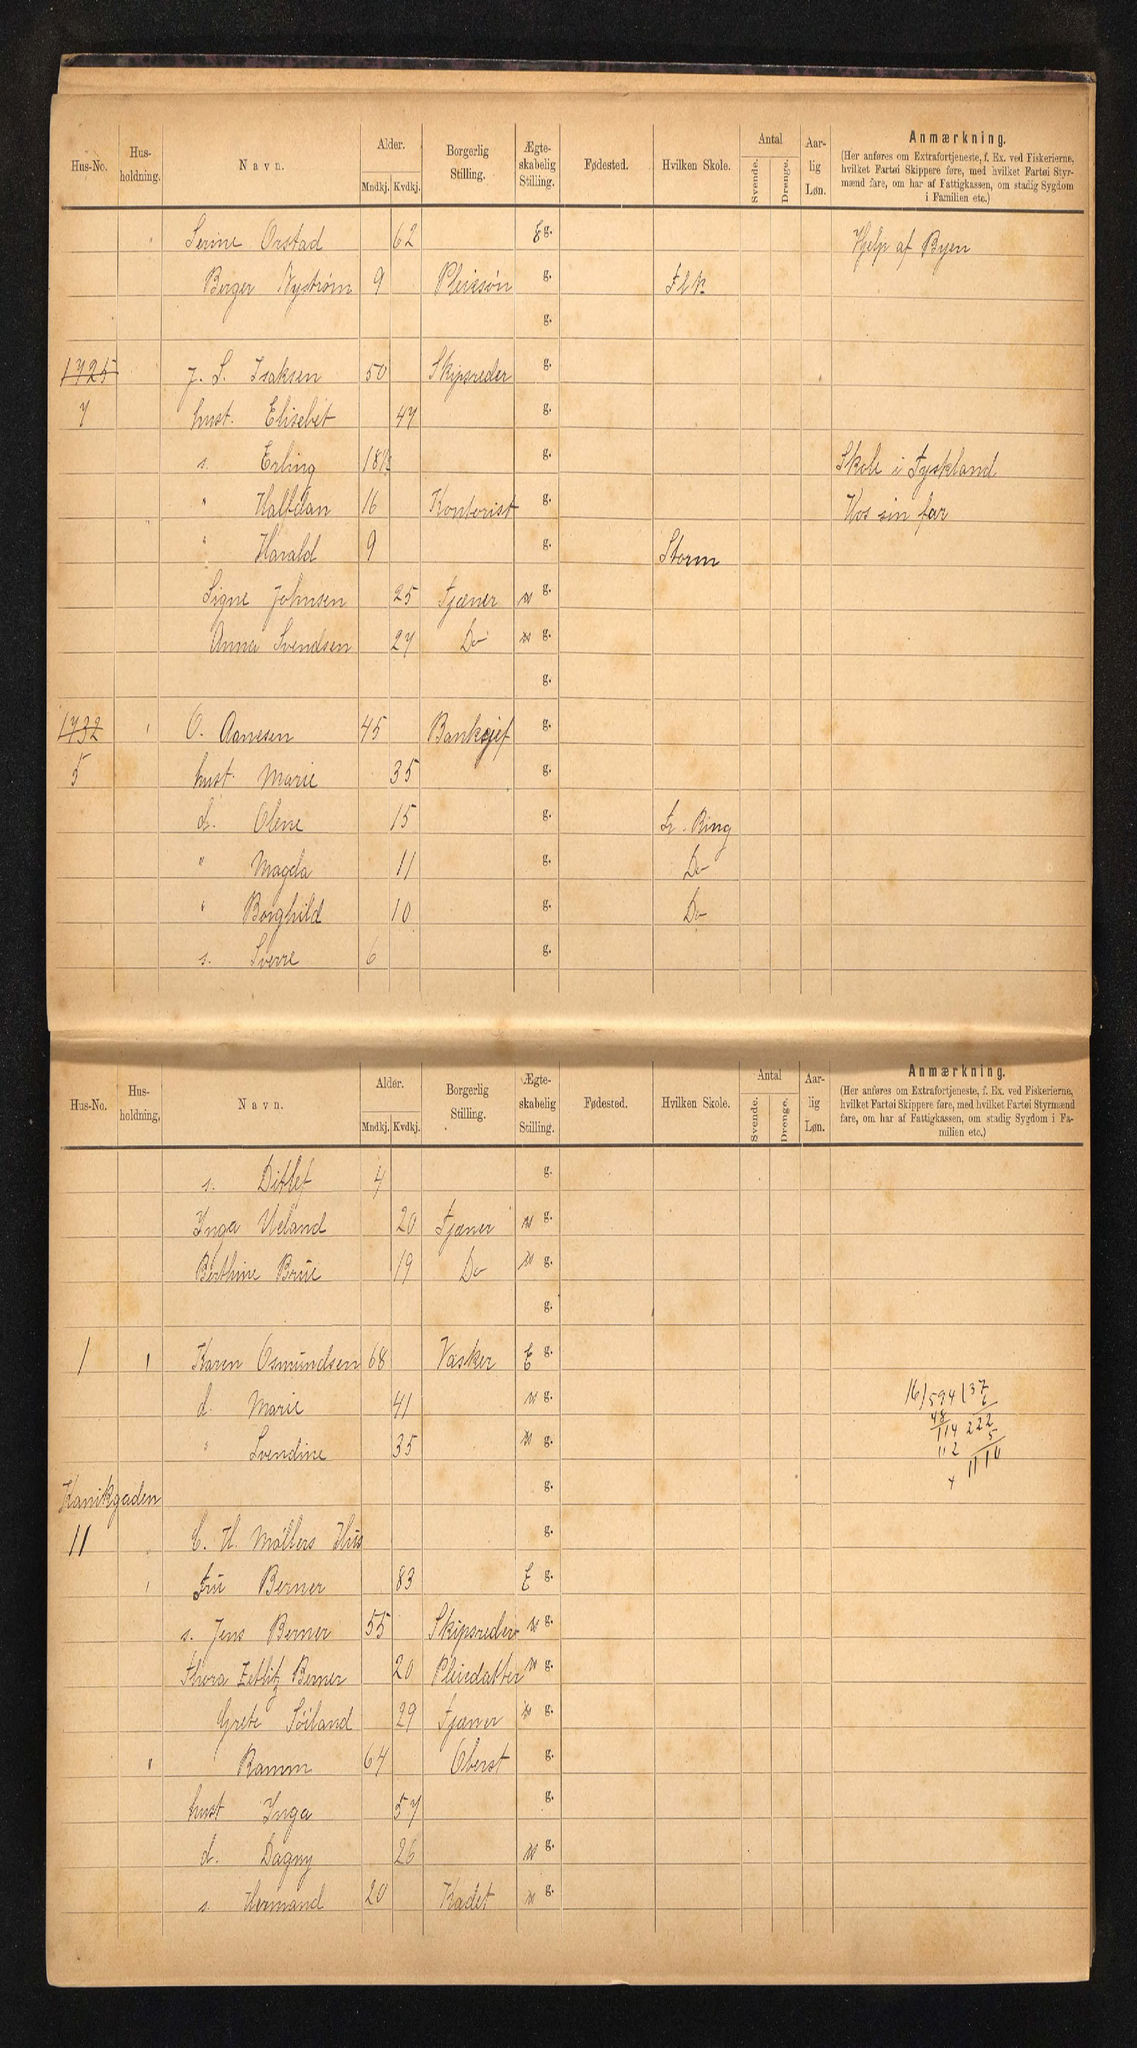 Hus-No. Hus-holdning. Navn. Alder. Mndkj. Kvdkj. Borgerlig Stilling. Ægte-skabelig Stilling. Fødested. Hvilken Skole. Antal Svende. Drenge. Aar-lig Løn. Anmærkning.
(Her anføres om Extrafortjeneste, f. Ex. ved Fiskerierne,
hvilket Fartøi Skippere føre, med hvilket Fartøi Styr-
mænd fare, om har af Fattigkassen, om stadig Sygdom
i Familien etc.)
Serine Orstad 62 E g. Hjelp af Byen
Berger Nystrøm 9 Pleiesøn g. Flk
g.
1725 J. S. Isaksen 50 Skipsreder g.
7 hust. Elisebet 47 g.
s. Erling 18½ g. Skole i Tyskland
" Halfdan 16 Kontorist g. Hos sin far
" Harald 9 g. Storm
Signe Johnsen 25 Tjæner u g.
Anna Svendsen 27 Do u g.
g.
1732 " O. Aanesen 45 Banksjef g.
5 hust. Marie 35 g.
d. Olene 15 g. Fr. Bing
" Magda 11 g. Do
" Borghild 10 g. Do
s. Sverre 6 g.
Hus-No. Hus-holdning. Navn. Alder. Mndkj. Kvdkj. Borgerlig Stilling. Ægte-skabelig Stilling. Fødested. Hvilken Skole. Antal Svende. Drenge. Aar-lig Løn. Anmærkning.
(Her anføres om Extrafortjeneste, f. Ex. ved Fiskerierne,
hvilket Fartøi Skippere føre, med hvilket Fartøi Styrmænd
føre, om har af Fattigkassen, om stadig Sygdom i Fa-
milien etc.)
s. Ditlef 4 g.
Inga Ueland 20 Tjæner u g.
Berthine Brue 19 Do u g.
g.
1 " Karen Osmundsen 68 Vasker E g.
d. Marie 41 u g. 16/594/37
" Svendine 35 u g. 48 6
114 222
112 5
4 1110
Kanikgaden g.
11 " C. H. Møllers Hus g.
" Fru Berner 83 E g.
s. Jens Berner 55 Skipsreder u g.
Thora Zetlitz Berner 20 Pleiedatter u g.
Grete Søiland 29 Tjæner u g.
" Ramm 64 Oberst g.
hust Inga 57 g.
d. Dagny 26 u g.
s. Hermand 20 Kadet u g.